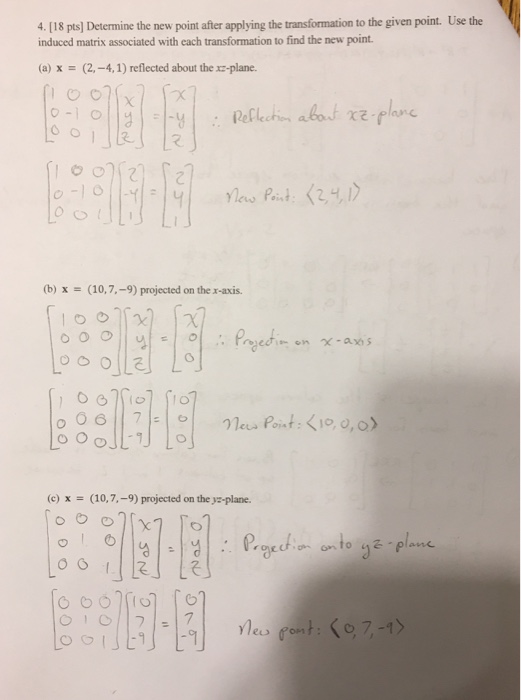 4. [18 pts] Determine the new point after applying the transformation to the given point. Use the
induced matrix associated with each transformation to find the new point.
(a) x = (2,−4,1) reflected about the xz-plane.
[1 0 0; 0 -1 0; 0 0 1] [x; y; z] = [x; -y; z] ∴ Reflection about xz-plane
[1 0 0; 0 -1 0; 0 0 1] [2; -4; 1] = [2; 4; 1] New Point: ⟨2,4,1⟩
(b) x = (10,7,−9) projected on the x-axis.
[1 0 0; 0 0 0; 0 0 0] [x; y; z] = [x; 0; 0] ∴ Projection on x-axis
[1 0 0; 0 0 0; 0 0 0] [10; 7; -9] = [10; 0; 0] New Point: ⟨10,0,0⟩
(c) x = (10,7,−9) projected on the yz-plane.
[0 0 0; 0 1 0; 0 0 1] [x; y; z] = [0; y; z] ∴ Projection onto yz-plane
[0 0 0; 0 1 0; 0 0 1] [10; 7; -9] = [0; 7; -9] New point: ⟨0,7,-9⟩